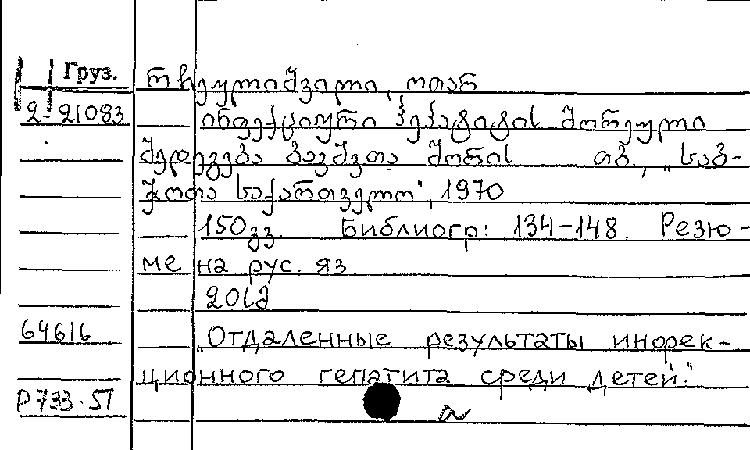 Груз.
2-21083
რჩეულიშვილი, ოთარ
ინფექციური ჰეპატიტის შორეული
შედეგები ბავშვთა შორის თბ., „საბ-
ჭოთა საქართველო", 1970
150გვ. Библиогр: 134-148. Резю-
ме на рус. яз
64616
„Отдаленные результаты инфек-
ционного гепатита среди детей."
Р733.51